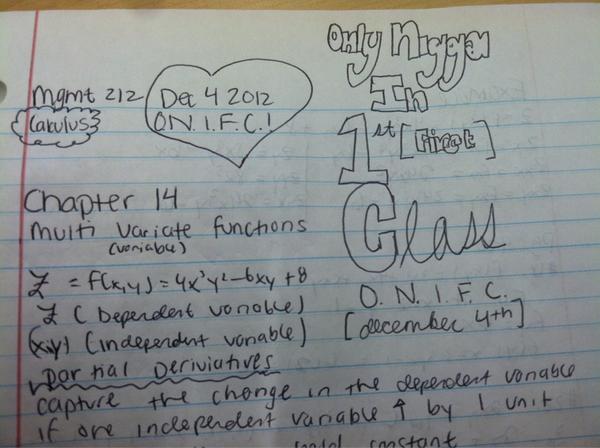 Only Nigga
In
1st [First]
Class
O.N.I.F.C.
[december 4th]
Mgmt 212
{Calculus}
Dec 4 2012
O.N.I.F.C.!
Chapter 14
Multi Variate functions
(variable)
Z = F(x,y) = 4x³y²-6xy+8
Z (Dependent variable)
(x,y) (independent variable)
Partial Deriviatives
capture the change in the dependent variable
if one independent variable ↑ by 1 unit
constant